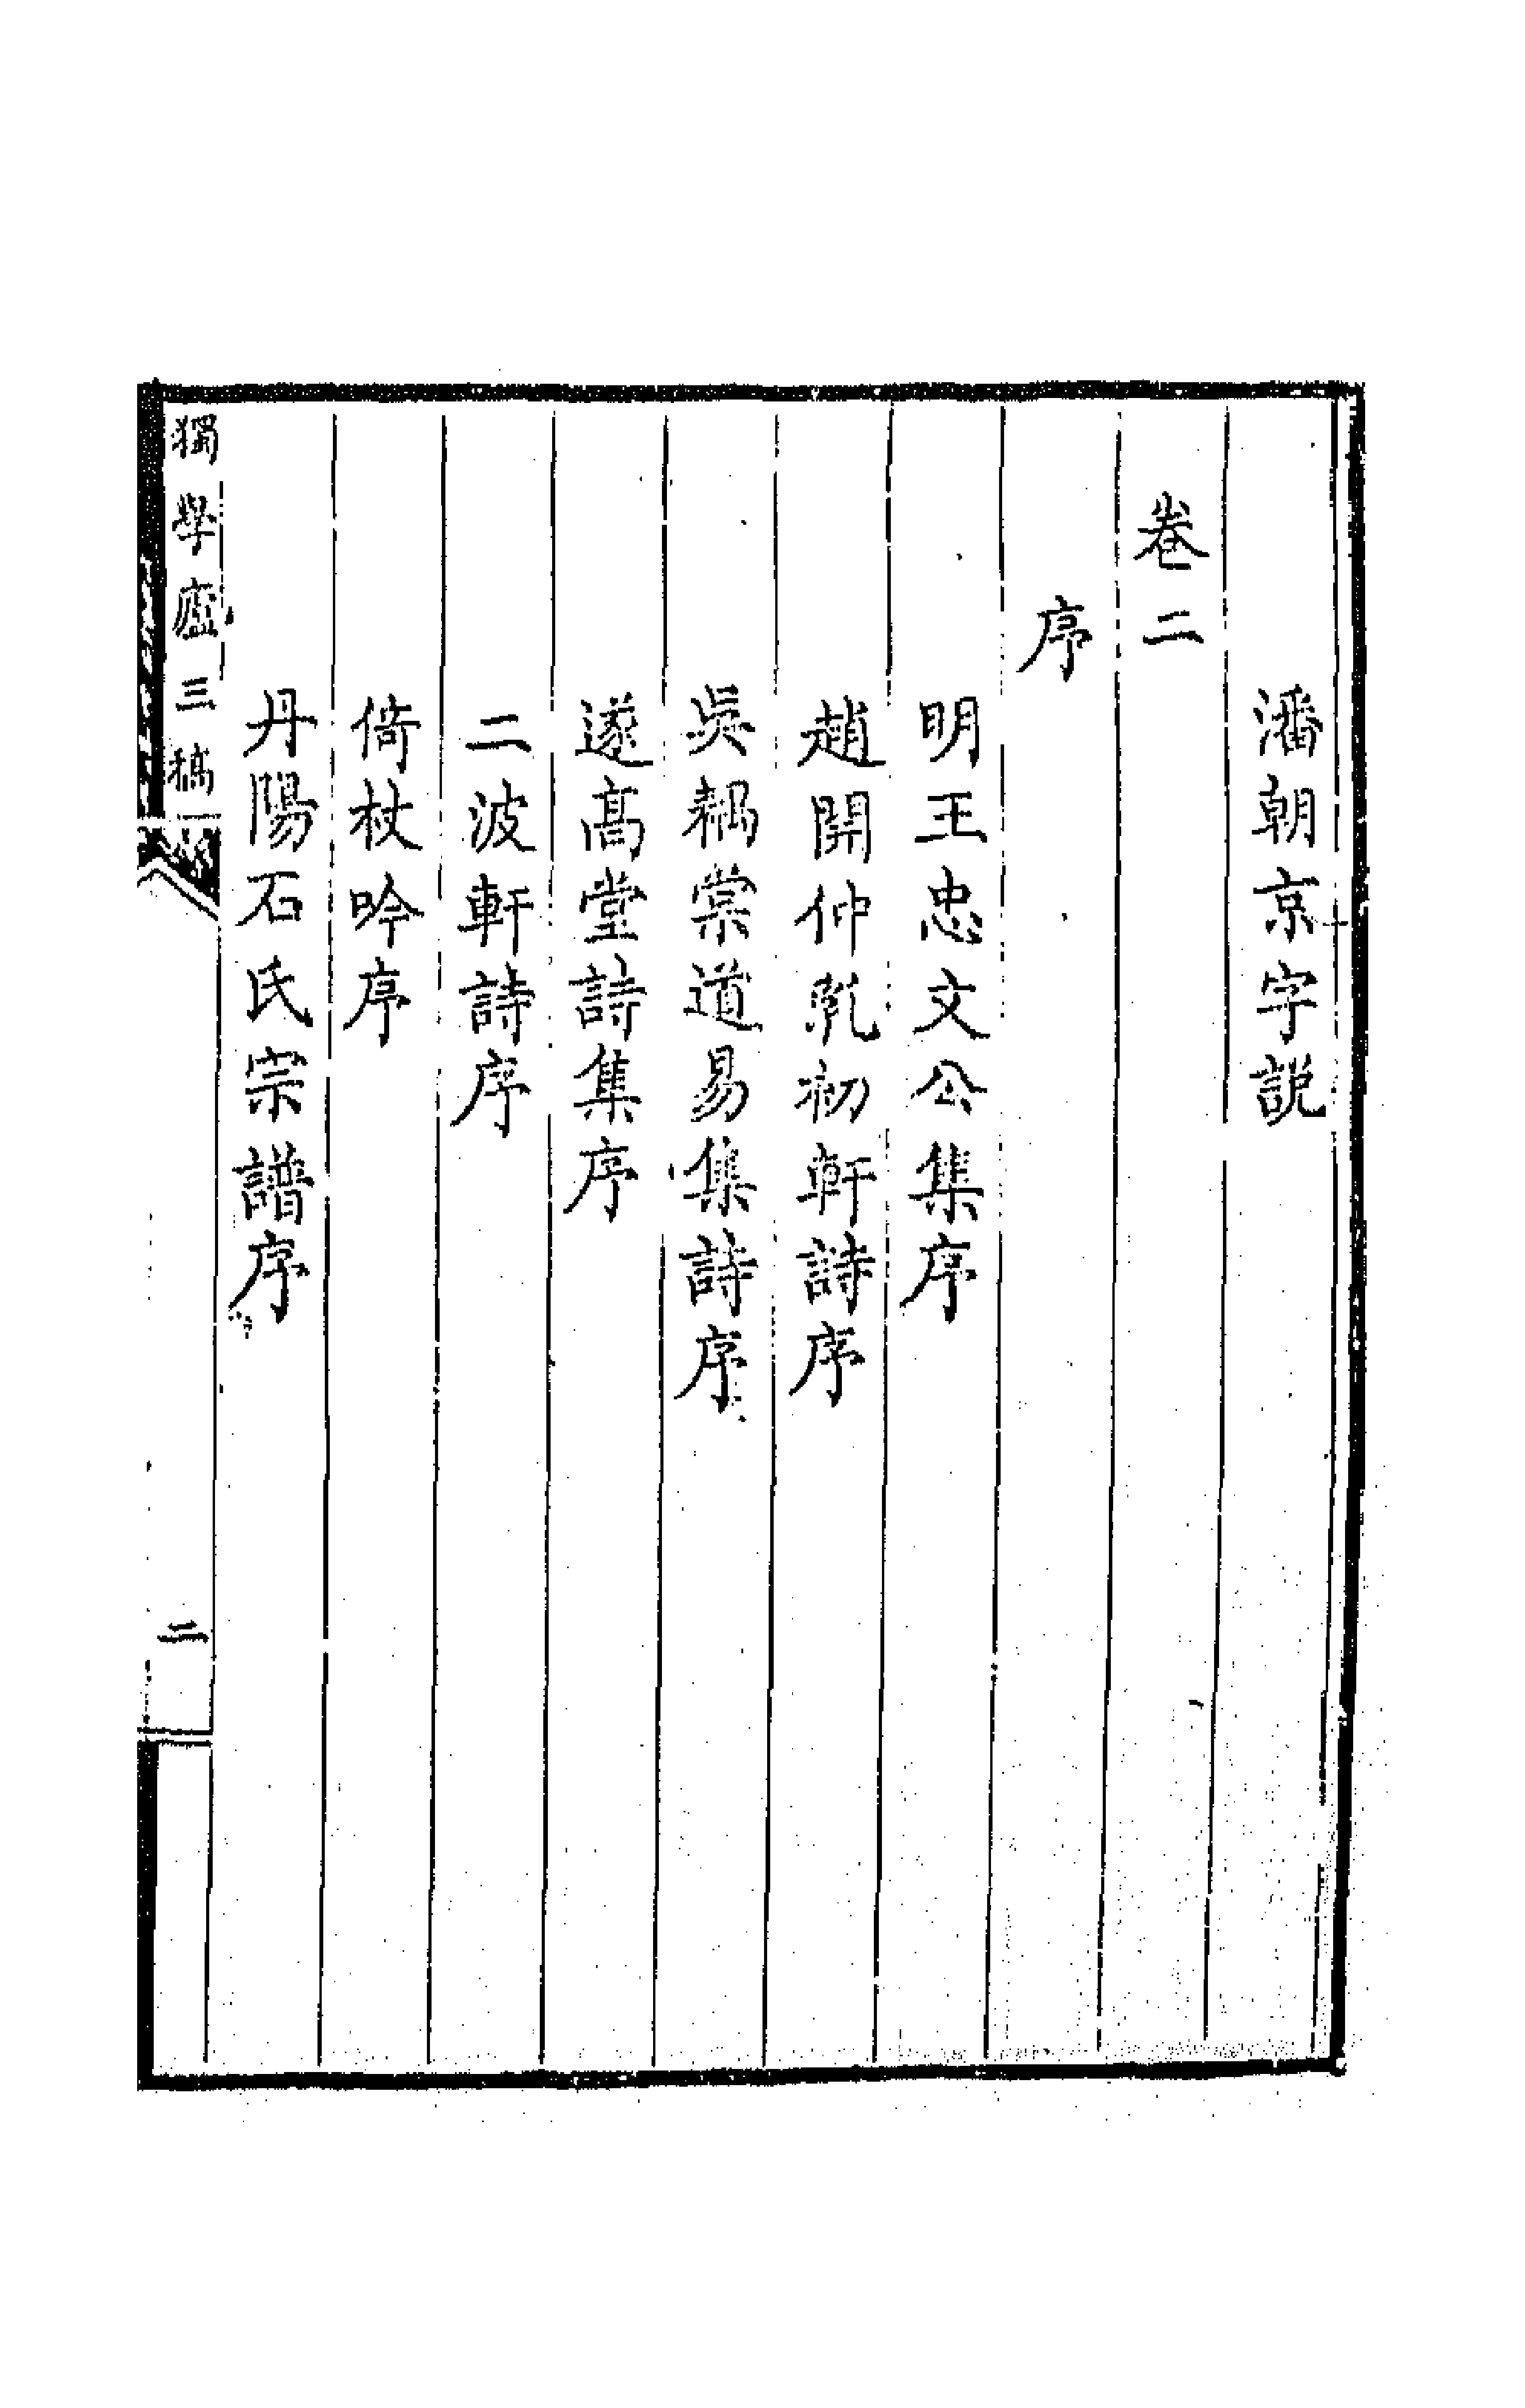 潘朝京字說
卷二
序
明王忠文公集序
趙開仲乳初軒詩序
吳耦棠道易集詩序
遂高堂詩集序
二波軒詩序
倚杖吟序
丹陽石氏宗譜序
獨學廬三稿
二